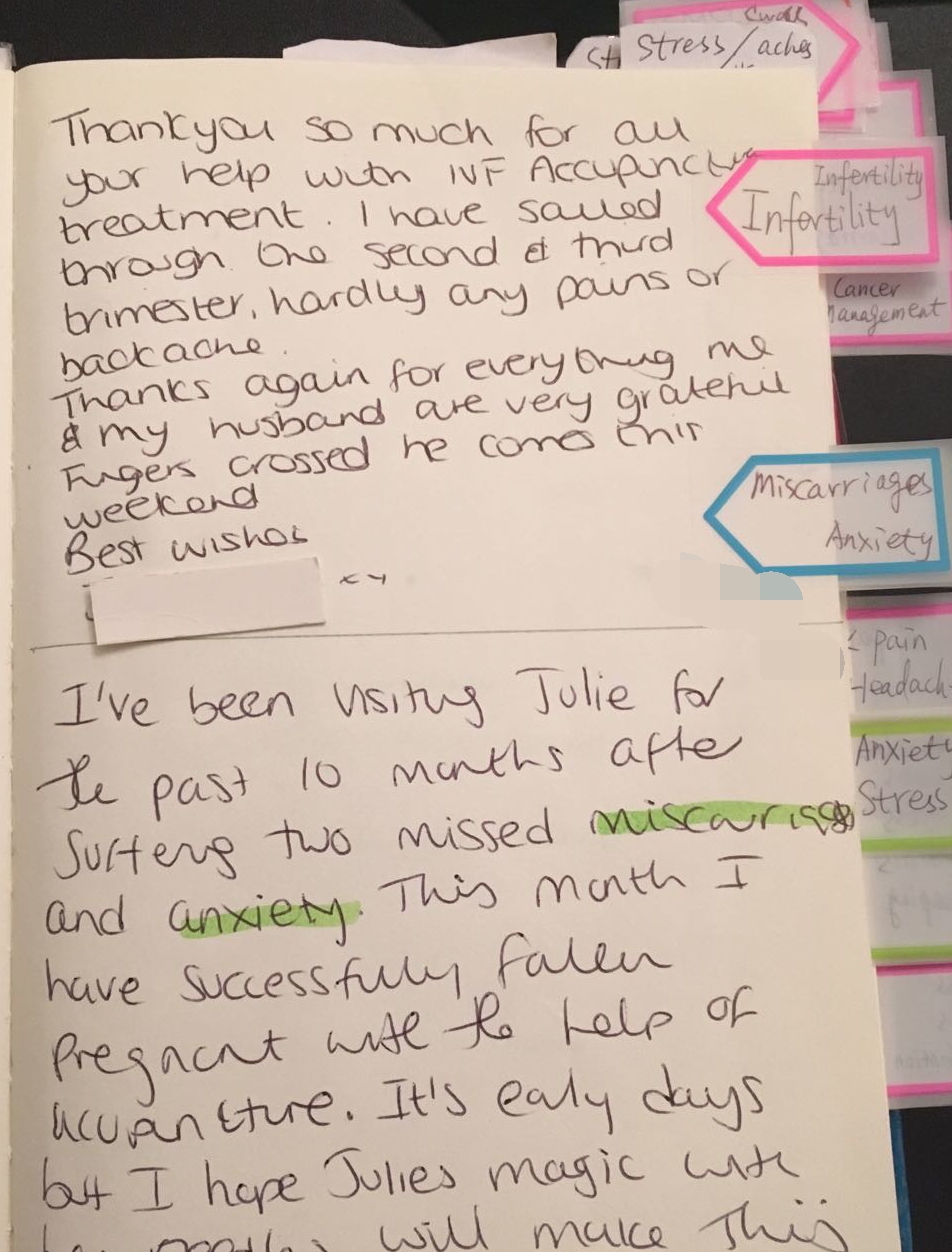 Thankyou so much for all
your help with IVF Accupunctu
treatment. I have sailed
through the second & third
trimester, hardly any pains or
backache.
Thanks again for everything me
& my husband are very grateful
Fingers crossed he comes this
weekend
Best wishes
xx
I've been visiting Julie for
the past 10 months after
suffering two missed miscarriages
and anxiety. This month I
have successfully fallen
pregnant with the help of
acupuncture. It's ealy days
but I hope Julies magic with
her needles will make this
St
Stress/aches
Infertility
Infertility
Cancer
Management
Miscarriages
Anxiety
Pain
Headach
Anxiety
Stress